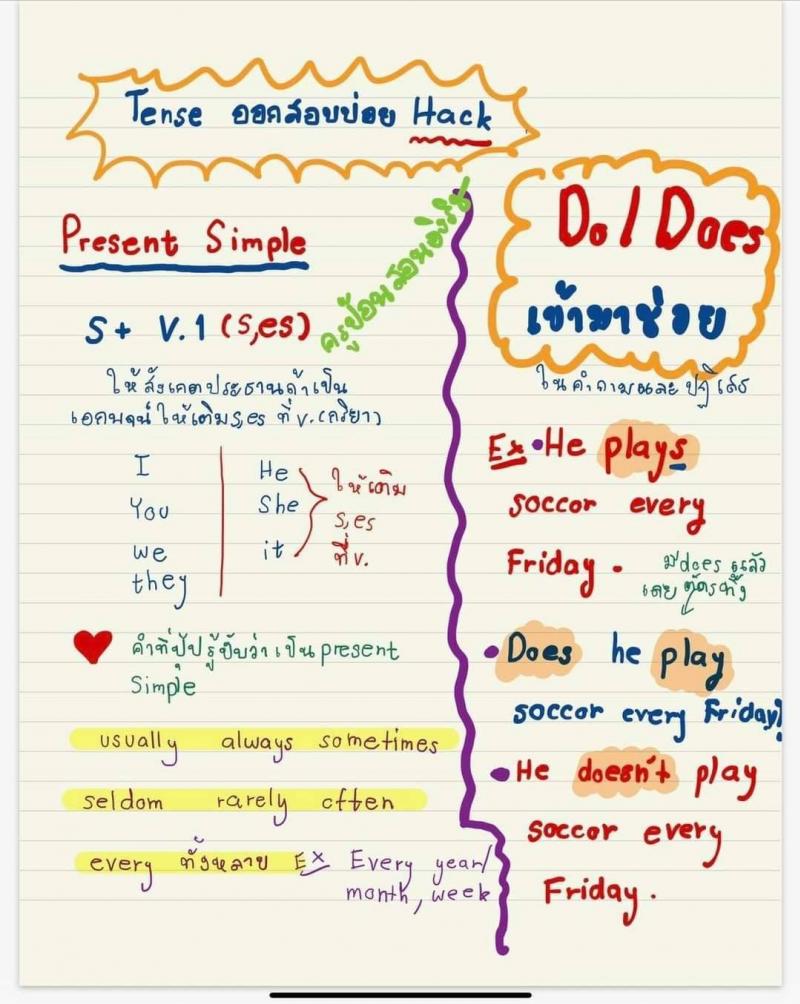 Tense ออกสอบบ่อย Hack
Present Simple
S + V.1 (s,es)
ครูป้อนสอนอังกฤษ
ให้สังเกตประธานถ้าเป็น
เอกพจน์ ให้เติม s,es ที่ v.(กริยา)
I
You
we
they
He
She
it
ให้เติม
s,es
ที่ v.
คำที่ปุ๊ปรู้ปั๊บว่าเป็น present
Simple
usually always sometimes
seldom rarely often
every ทั้งหลาย Ex Every year/
month, week
Do / Does
เข้ามาช่วย
ในคำถามและ ปฏิเสธ
Ex • He plays
soccor every
Friday.
มี does อยู่แล้ว
เลย ตัด s ทิ้ง
• Does he play
soccor every Friday?
• He doesn't play
soccor every
Friday.